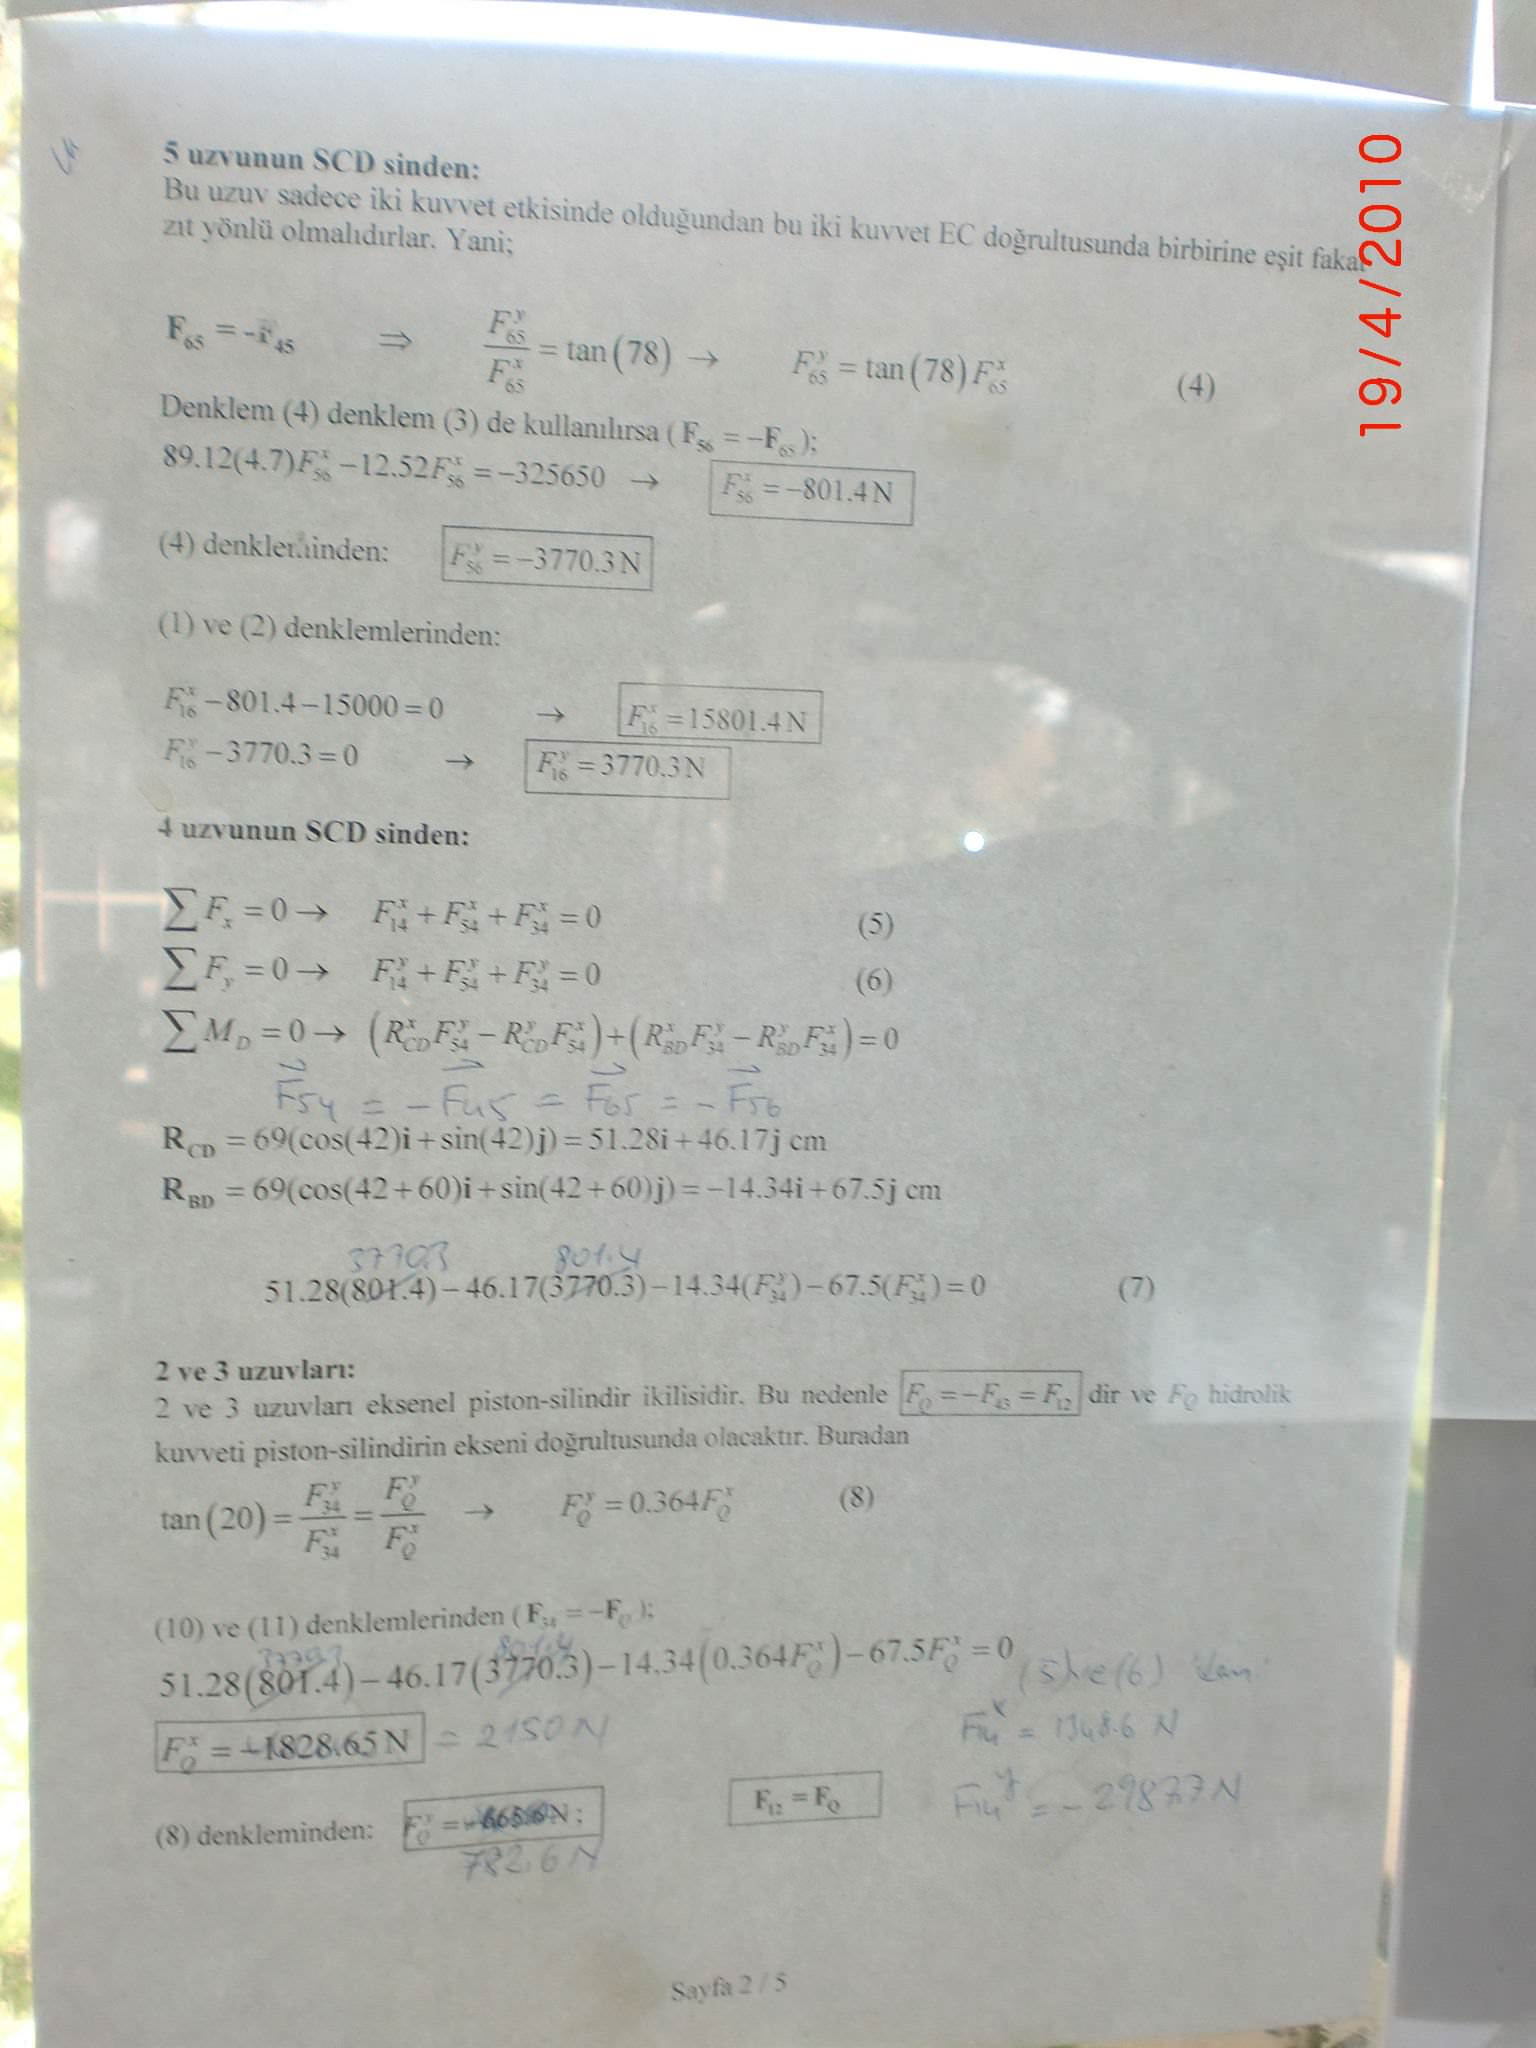 5 uzvunun SCD sinden:
Bu uzuv sadece iki kuvvet etkisinde olduğundan bu iki kuvvet EC doğrultusunda birbirine eşit fakat
zıt yönlü olmalıdırlar. Yani;
F₆₅ = -F₄₅ ⇒ F₆₅^y / F₆₅^x = tan(78) → F₆₅^y = tan(78) F₆₅^x (4)
Denklem (4) denklem (3) de kullanılırsa ( F₅₆ = −F₆₅ );
89.12(4.7)F₅₆^x − 12.52F₅₆^x = −325650 → F₅₆^x = −801.4 N
(4) denkleminden: F₅₆^y = −3770.3 N
(1) ve (2) denklemlerinden:
F₁₆^x − 801.4 − 15000 = 0 → F₁₆^x = 15801.4 N
F₁₆^y − 3770.3 = 0 → F₁₆^y = 3770.3 N
4 uzvunun SCD sinden:
∑F_x = 0 → F₁₄^x + F₅₄^x + F₃₄^x = 0 (5)
∑F_y = 0 → F₁₄^y + F₅₄^y + F₃₄^y = 0 (6)
∑M_D = 0 → (R_CD^x F₅₄^y − R_CD^y F₅₄^x) + (R_BD^x F₃₄^y − R_BD^y F₃₄^x) = 0
F⃗54 = − F⃗45 = F⃗65 = − F⃗56
R_CD = 69(cos(42)i + sin(42)j) = 51.28i + 46.17j cm
R_BD = 69(cos(42 + 60)i + sin(42 + 60)j) = −14.34i + 67.5j cm
3770.3 801.4
51.28(801.4) − 46.17(3770.3) − 14.34(F₃₄^y) − 67.5(F₃₄^x) = 0 (7)
2 ve 3 uzuvları:
2 ve 3 uzuvları eksenel piston-silindir ikilisidir. Bu nedenle F_Q = −F₄₃ = F₁₂ dir ve F_Q hidrolik
kuvveti piston-silindirin ekseni doğrultusunda olacaktır. Buradan
tan(20) = F₃₄^y / F₃₄^x = F_Q^y / F_Q^x → F_Q^y = 0.364F_Q^x (8)
(10) ve (11) denklemlerinden ( F₃₄ = −F_Q );
3770.3 801.4
51.28(801.4) − 46.17(3770.3) − 14.34(0.364F_Q^x) − 67.5F_Q^x = 0 (5) ve (6) 'dan
F_Q^x = −1828.65 N = 2150 N
F14^x = 1348.6 N
(8) denkleminden: F_Q^y = −665.6 N ; F₁₂ = F_Q
F14^y = − 2987.7 N
782.6 N
Sayfa 2 / 5
19/4/2010